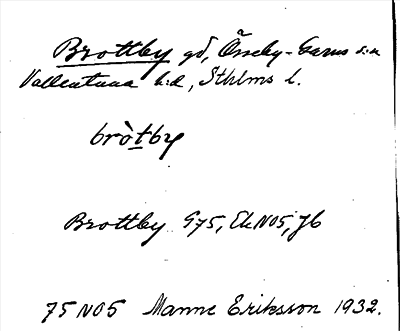 Brottby gd, Össeby-Garns s:n
Vallentuna h:d, Sthlms l.
bròtby
Brottby G75, Ek N05, Jb
75 N05 Manne Eriksson 1932.